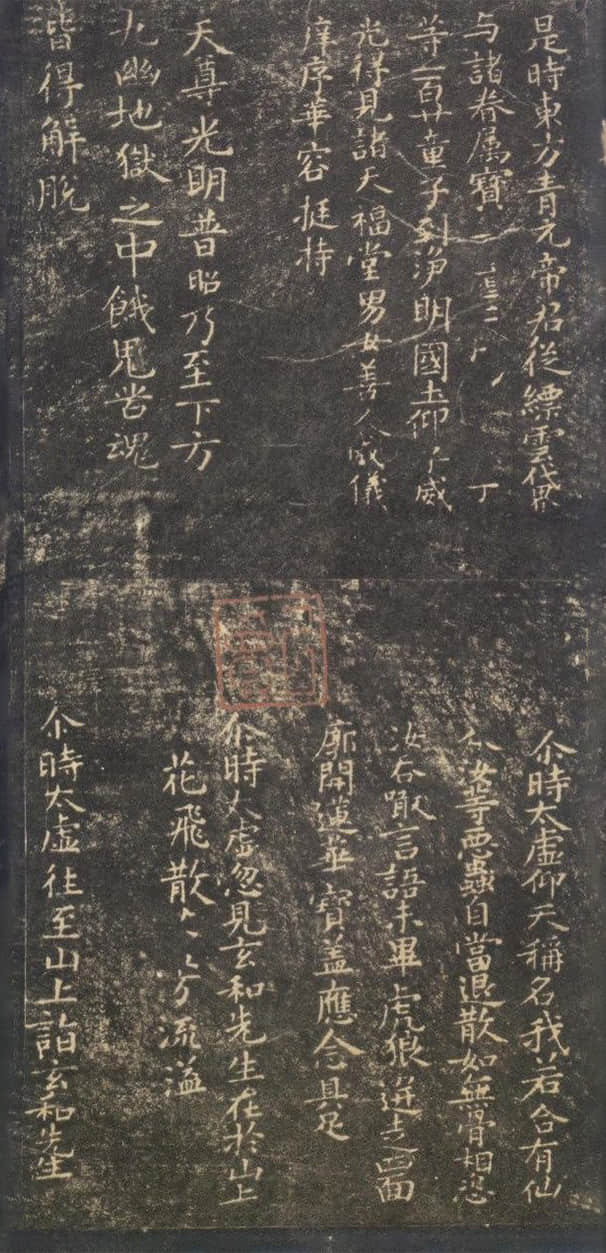 是時東方青元帝君從縹雲世界
与諸眷属寶
等一百廿童子到淨明國土仰 威
光得見諸天福堂男女善人威儀
庠序華容挺持
天尊光明普照乃至下方
九幽地獄之中餓鬼苦魂
皆得解脱
尒時太虛仰天稱名我若合有仙
 汝等惡蟲自當退散如無骨相恣
汝吞噉言語未畢虎狼迸走四面
廓開蓮華寶盖應念具足
尒時太虛忽見玄和先生在於山上
花飛散 方流溢
尒時太虛往至山上詣玄和先生